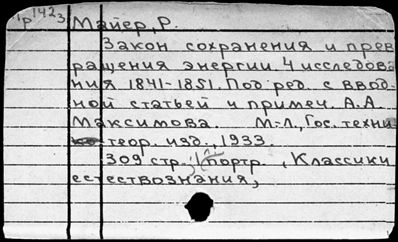 1р1423
Майер, Р.
Закон сохранения и прев
ращения энергии. 4 исследова
ния 1841-1851. Под ред. с ввод-
ной статьей и примеч. А.А.
Максимова. М.-Л., Гос. техни
теор. изд., 1933.
309 стр., 1 портр., Классики
естествознания,